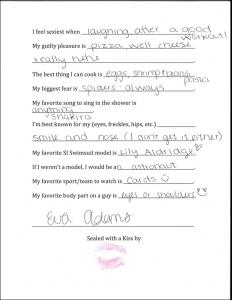 I feel sexiest when laughing, after a good
workout!
My guilty pleasure is pizza, well cheese
really hehe
The best thing I can cook is eggs, shrimp &
pasta
My biggest fear is spiders - always
My favorite song to sing in the shower is
anything
shakira
I'm best known for my (eyes, freckles, hips, etc.)
smile and nose (I don't get it either)
My favorite SI Swimsuit model is Lily Aldridge ♡
If I weren't a model, I would be an astronaut
My favorite sport/team to watch is Cards ☺
My favorite body part on a guy is eyes or shoulders ♡♡
Eva Adams
Sealed with a Kiss by